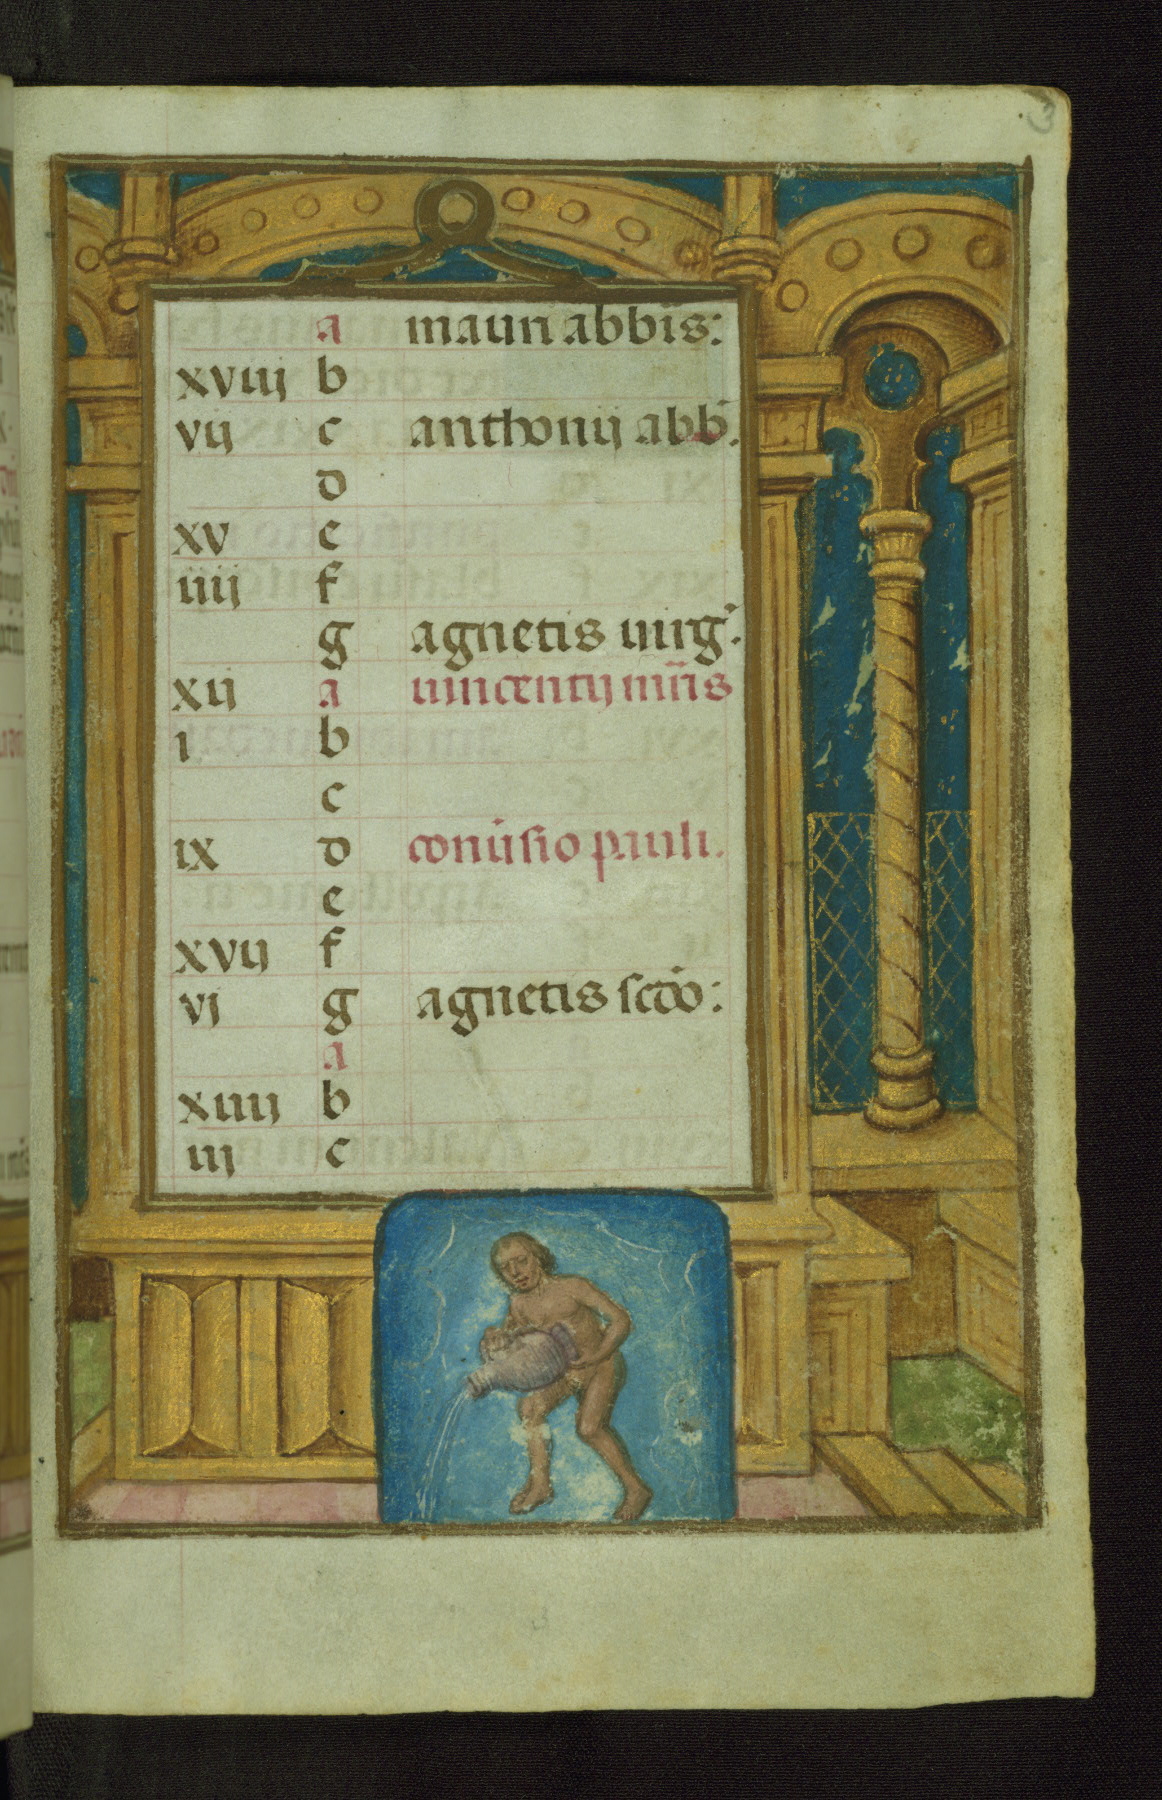 3
a mauri abbis:
xviij b
vij c anthonij abb.
d
xv e
iiij f
g agnetis uirg:
xij a uincentij mris
i b
c
ix d conusio pauli.
e
xvij f
vj g agnetis scdo:
a
xiiij b
iij c